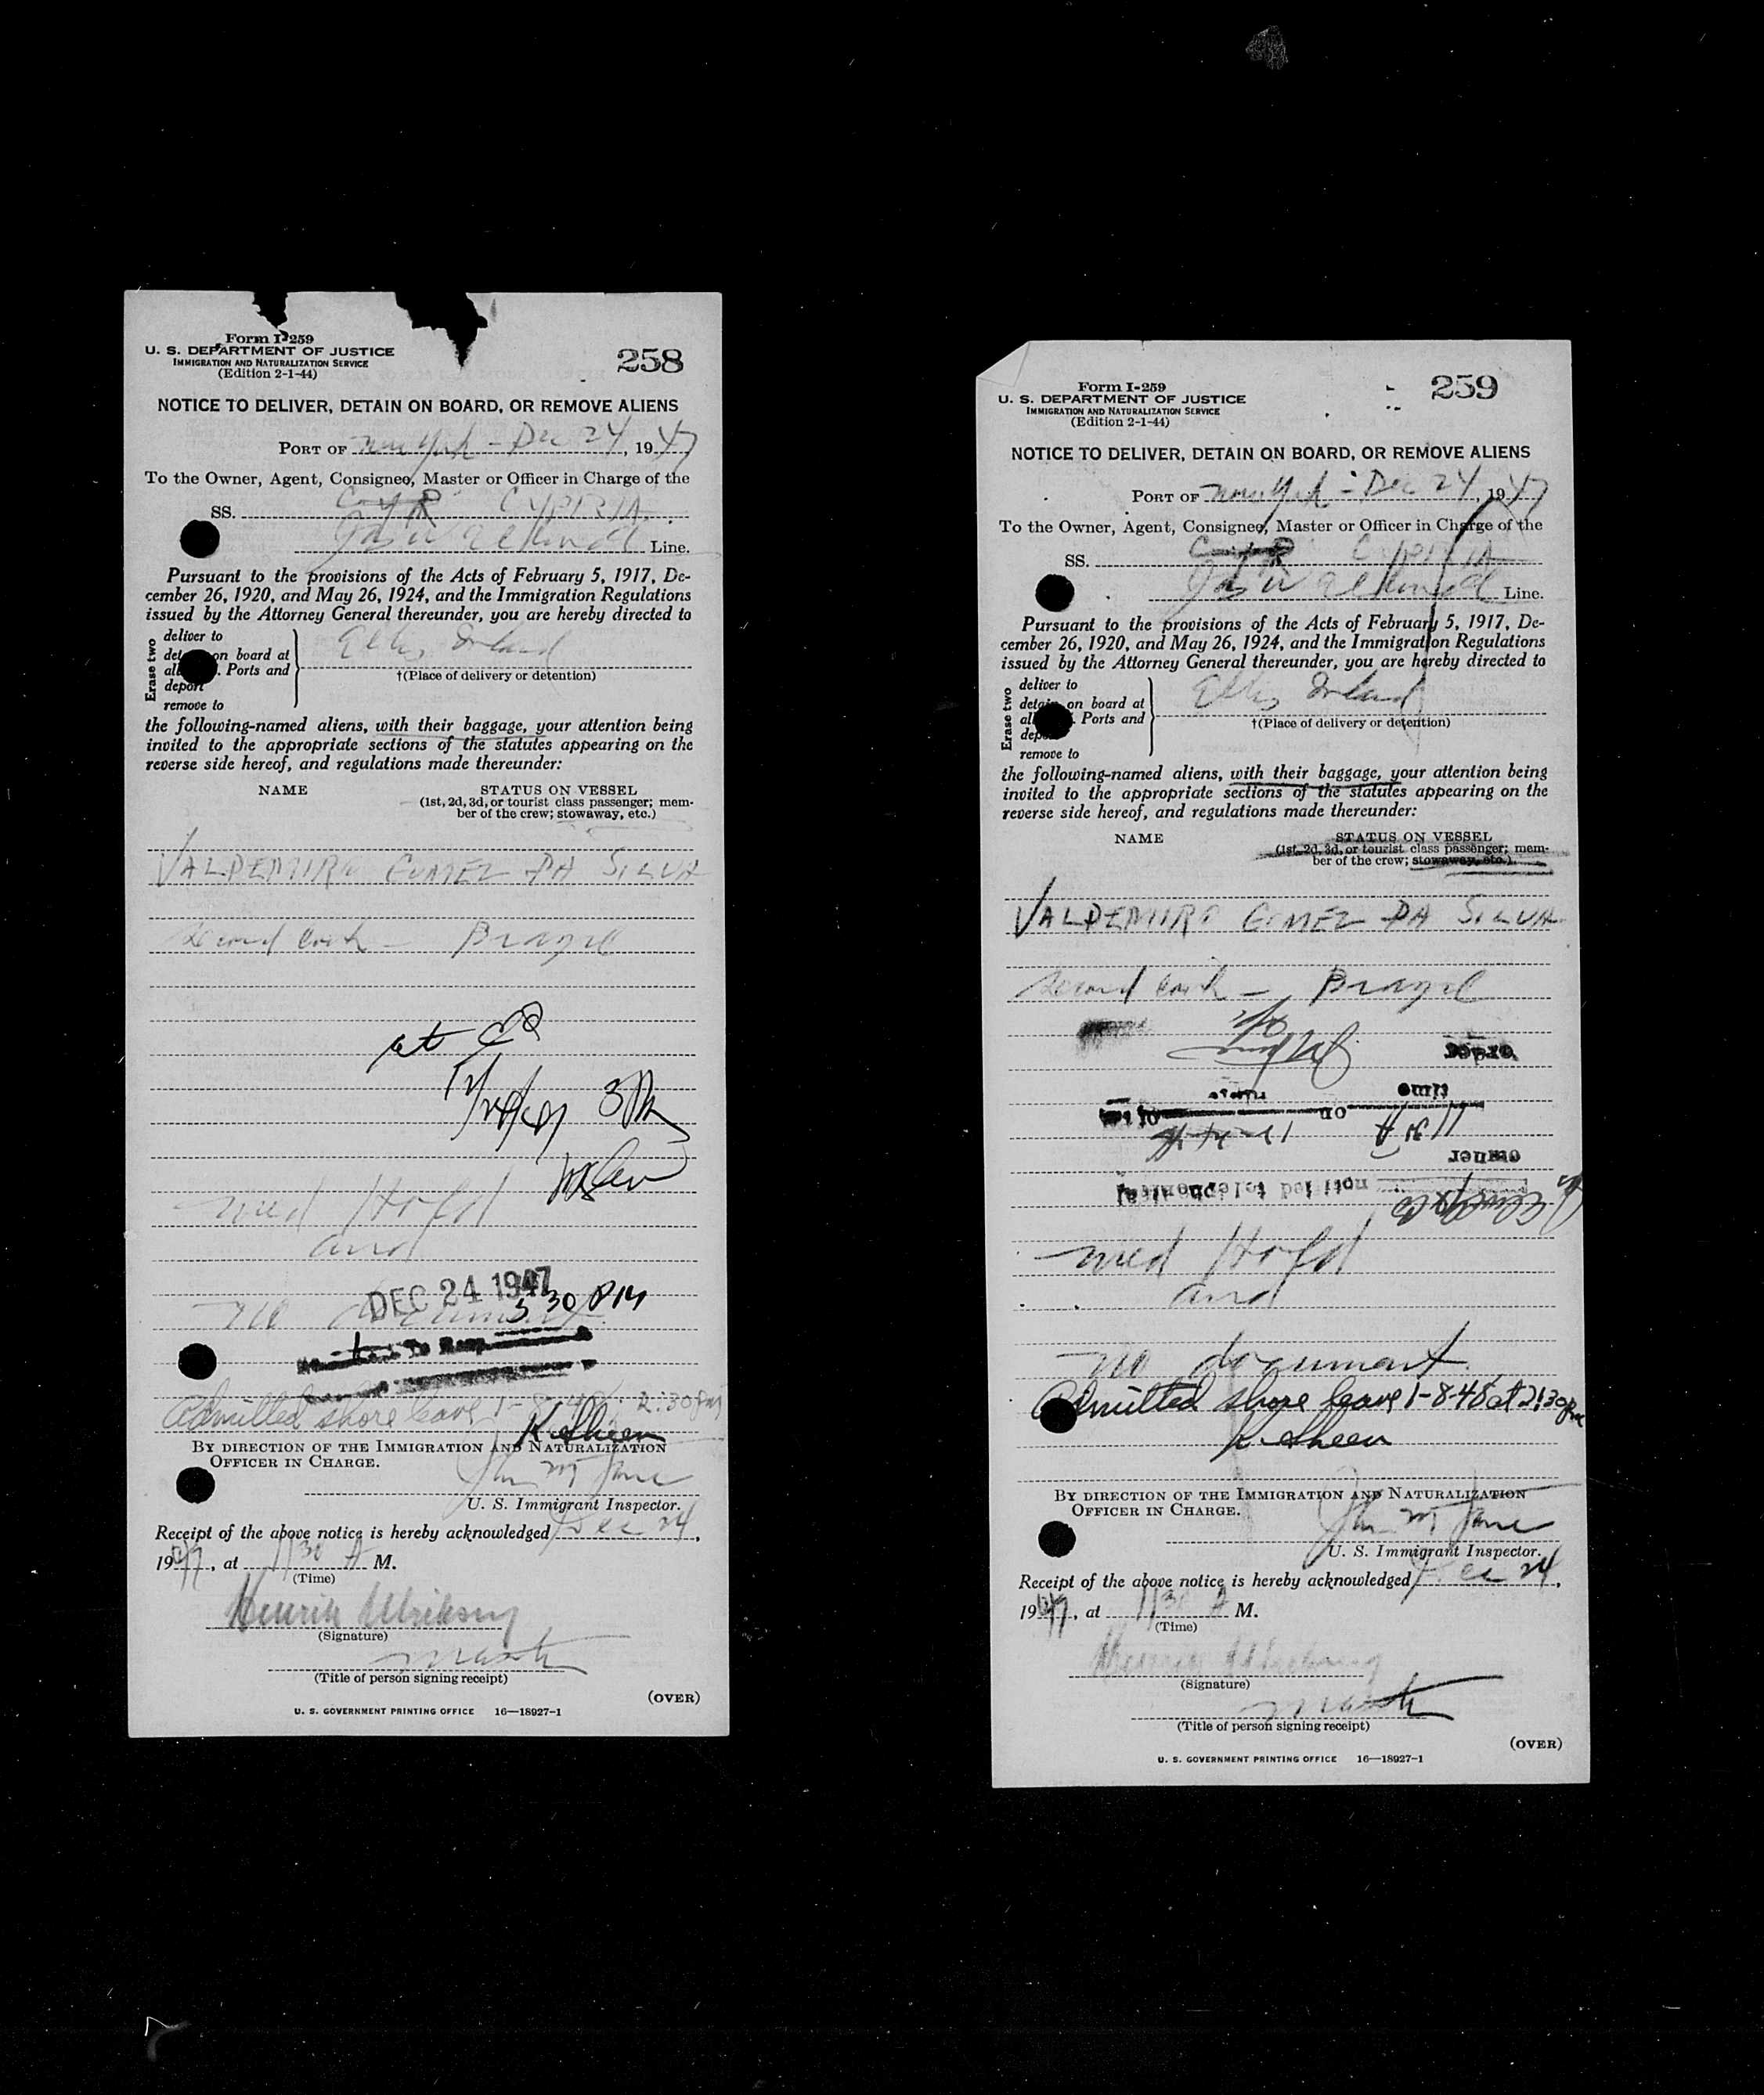 Form I-259
U. S. DEPARTMENT OF JUSTICE
IMMIGRATION AND NATURALIZATION SERVICE
(Edition 2-1-44)
258
NOTICE TO DELIVER, DETAIN ON BOARD, OR REMOVE ALIENS
PORT OF New York - Dec 24, 1947
To the Owner, Agent, Consignee, Master or Officer in Charge of the
SS. CYPRIA
Line.
Pursuant to the provisions of the Acts of February 5, 1917, De-
cember 26, 1920, and May 26, 1924, and the Immigration Regulations
issued by the Attorney General thereunder, you are hereby directed to
Erase two
deliver to
on board at
Ports and
deport
remove to
Ellis Island
†(Place of delivery or detention)
the following-named aliens, with their baggage, your attention being
invited to the appropriate sections of the statutes appearing on the
reverse side hereof, and regulations made thereunder:
NAME STATUS ON VESSEL
(1st, 2d, 3d, or tourist class passenger; mem-
ber of the crew; stowaway, etc.)
VALDEMIRO GOMEZ DA SILVA
Second Cook - Brazil
at
3 PM
Med Hold
and
DEC 24 1947
3 30 PM
no document
Admitted shore leave 1-8-48 2:30 pm
K. Sheen
BY DIRECTION OF THE IMMIGRATION AND NATURALIZATION
OFFICER IN CHARGE.
U. S. Immigrant Inspector.
Receipt of the above notice is hereby acknowledged Dec 24,
1947, at 11 30 A M.
(Time)
Henrik Ulriksen
(Signature)
Master
(Title of person signing receipt)
(OVER)
U. S. GOVERNMENT PRINTING OFFICE 16—18927-1
Form I-259
U. S. DEPARTMENT OF JUSTICE
IMMIGRATION AND NATURALIZATION SERVICE
(Edition 2-1-44)
259
NOTICE TO DELIVER, DETAIN ON BOARD, OR REMOVE ALIENS
PORT OF New York - Dec 24, 1947
To the Owner, Agent, Consignee, Master or Officer in Charge of the
SS. CYPRIA
Line.
Pursuant to the provisions of the Acts of February 5, 1917, De-
cember 26, 1920, and May 26, 1924, and the Immigration Regulations
issued by the Attorney General thereunder, you are hereby directed to
Erase two
deliver to
detain on board at
Ports and
remove to
Ellis Island
†(Place of delivery or detention)
the following-named aliens, with their baggage, your attention being
invited to the appropriate sections of the statutes appearing on the
reverse side hereof, and regulations made thereunder:
NAME STATUS ON VESSEL
(1st, 2d, 3d, or tourist class passenger; mem-
ber of the crew; stowaway, etc.)
VALDEMIRO GOMEZ DA SILVA
Second Cook - Brazil
time
on
owner
notified telephonically
Med Hold
and
no document
Admitted shore leave 1-8-48 at 2:30 pm
K. Sheen
BY DIRECTION OF THE IMMIGRATION AND NATURALIZATION
OFFICER IN CHARGE.
U. S. Immigrant Inspector.
Receipt of the above notice is hereby acknowledged Dec 24,
1947, at 11 30 A M.
(Time)
Henrik Ulriksen
(Signature)
Master
(Title of person signing receipt)
(OVER)
U. S. GOVERNMENT PRINTING OFFICE 16—18927-1